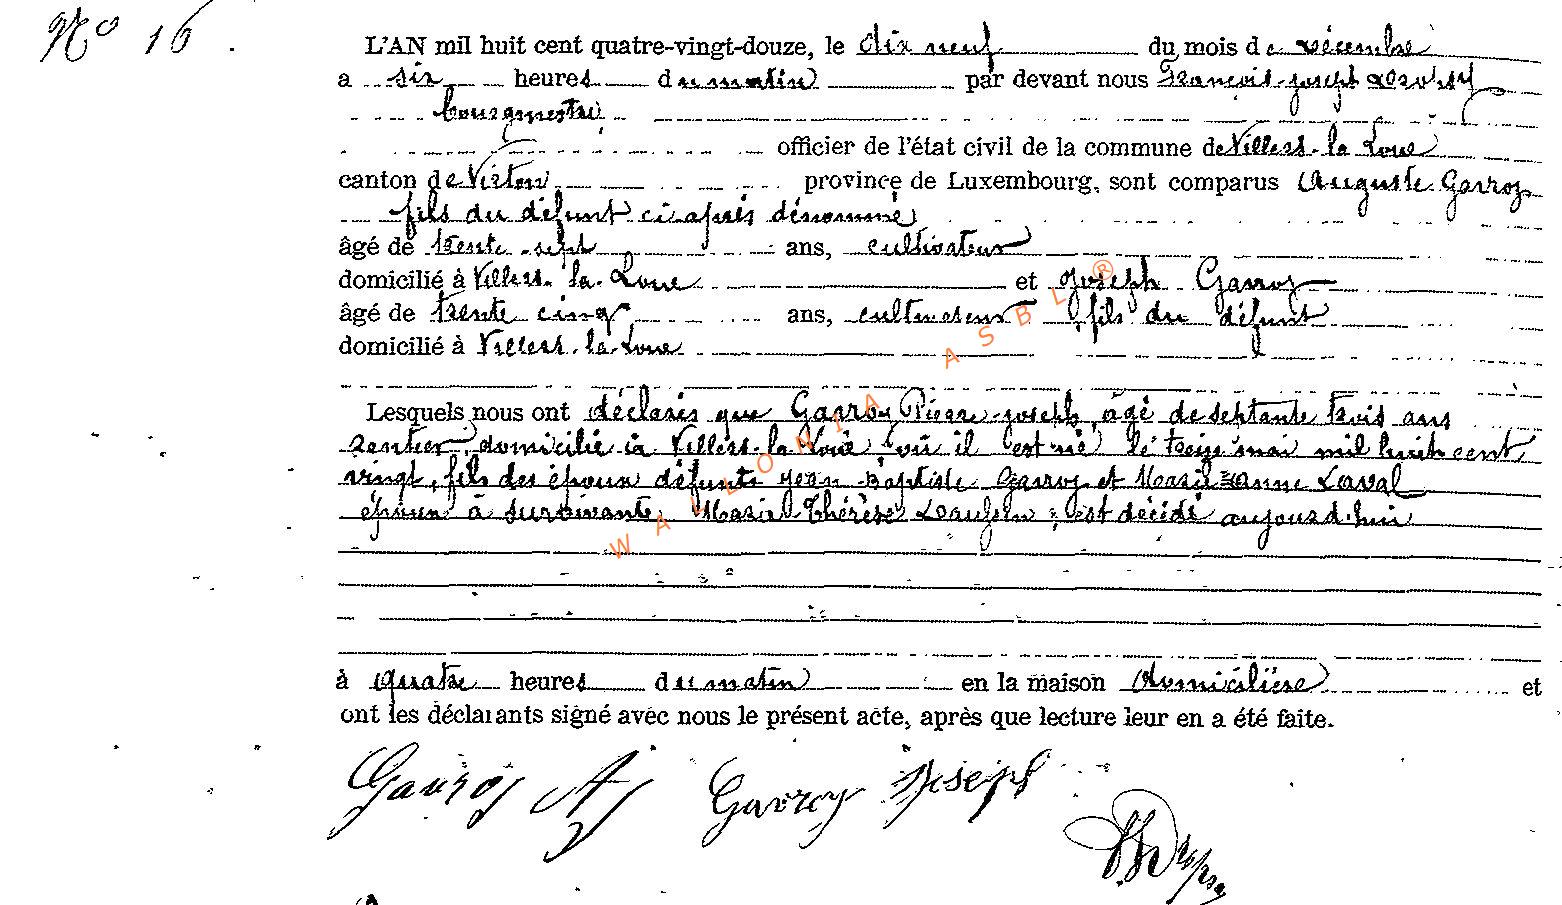 No 16.
L'AN mil huit cent quatre-vingt-douze, le dix neuf du mois de décembre
a six heures du matin par devant nous François-joseph
bourgmestre
officier de l'état civil de la commune de Villers-la Loue
canton de Virton province de Luxembourg, sont comparus Auguste Gavroy
fils du défunt ci après dénommé
âgé de trente-sept ans, cultivateur
domicilié à Villers-la-Loue et joseph Gavroy
âgé de trente cinq ans, cultivateur fils du défunt
domicilié à Villers-la-Loue
Lesquels nous ont déclaré que Gavroy Pierre-joseph, âgé de septante trois ans
rentier, domicilié à Villers-la Loue, où il est né le treize mai mil huit cent
vingt, fils des époux défunts jean Baptiste Gavroy et Marie Anne Laval
époux à survivante Marie Thérèse est décédé aujourd'hui
à quatre heures du matin en la maison domiciliére et
ont les déclarants signé avec nous le présent acte, après que lecture leur en a été faite.
Gavroy AJ Gavroy Joseph
WALLONIA ASBL ®